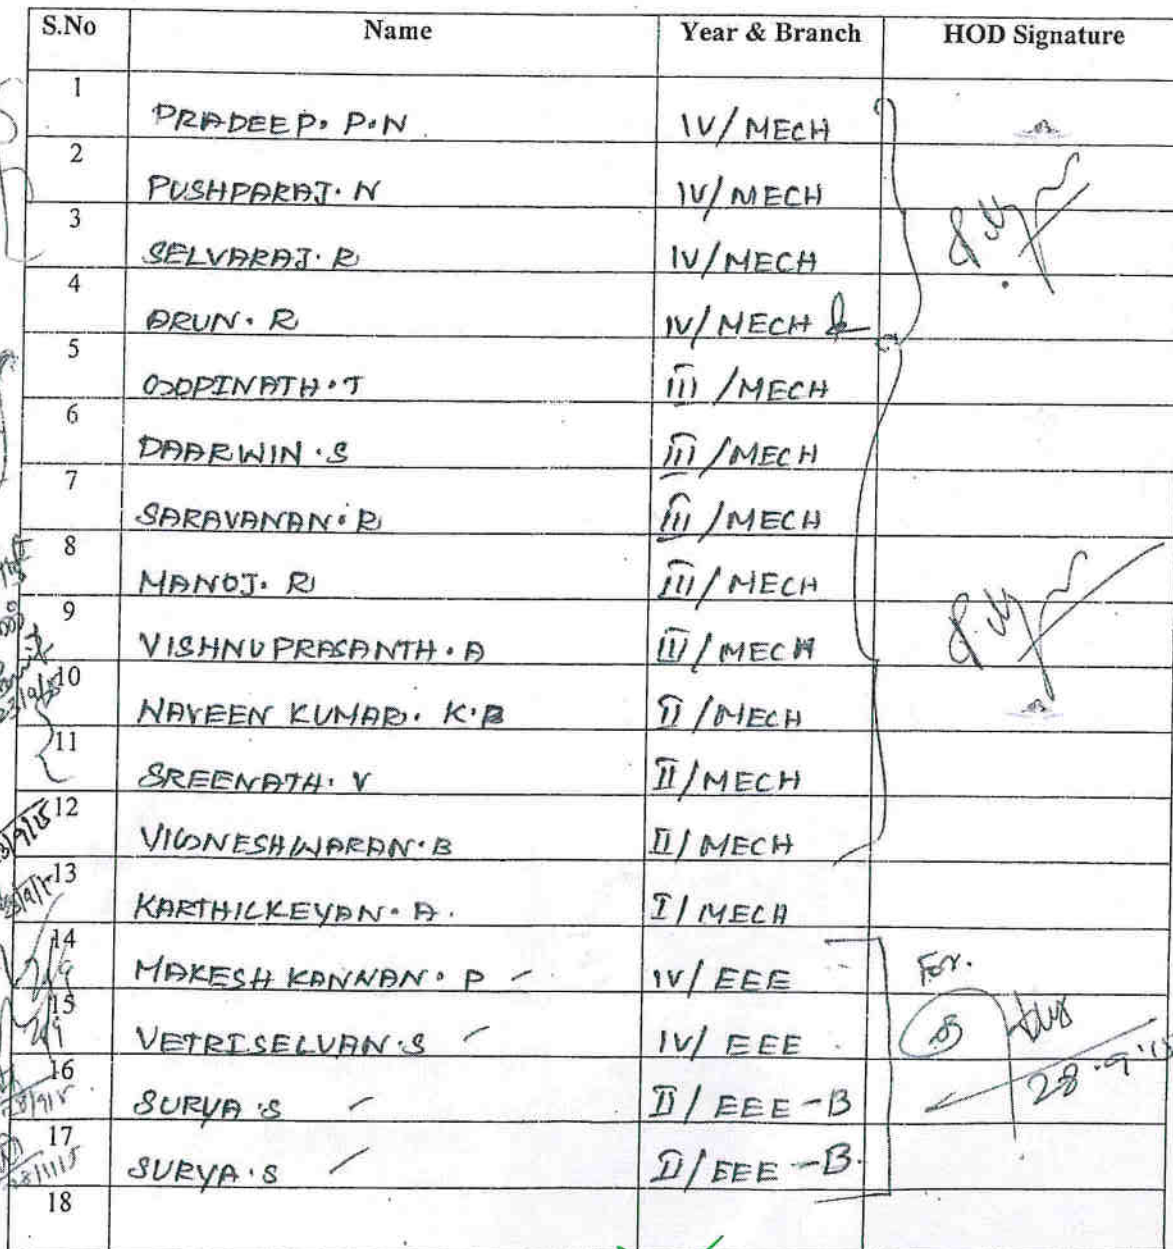 S.No Name Year & Branch HOD Signature
1 PRADEEP. P.N IV/MECH
2 PUSHPARAJ. N IV/MECH
3 SELVARAJ. R IV/MECH
4 ARUN. R IV/MECH
5 GOPINATH. T III/MECH
6 DAARWIN. S III/MECH
7 SARAVANAN. R III/MECH
8 MANOJ. R III/MECH
9 VISHNUPRASANTH. A III/MECH
10 NAVEEN KUMAR. K.B II/MECH
11 SREENATH. V II/MECH
12 VIGNESHWARAN. B II/MECH
13 KARTHICKEYAN. A. I/MECH
14 MAKESH KANNAN. P IV/EEE For.
15 VETRISELVAN. S IV/EEE
28.9.15
16 SURYA. S II/EEE-B
17 SURYA. S II/EEE-B
18